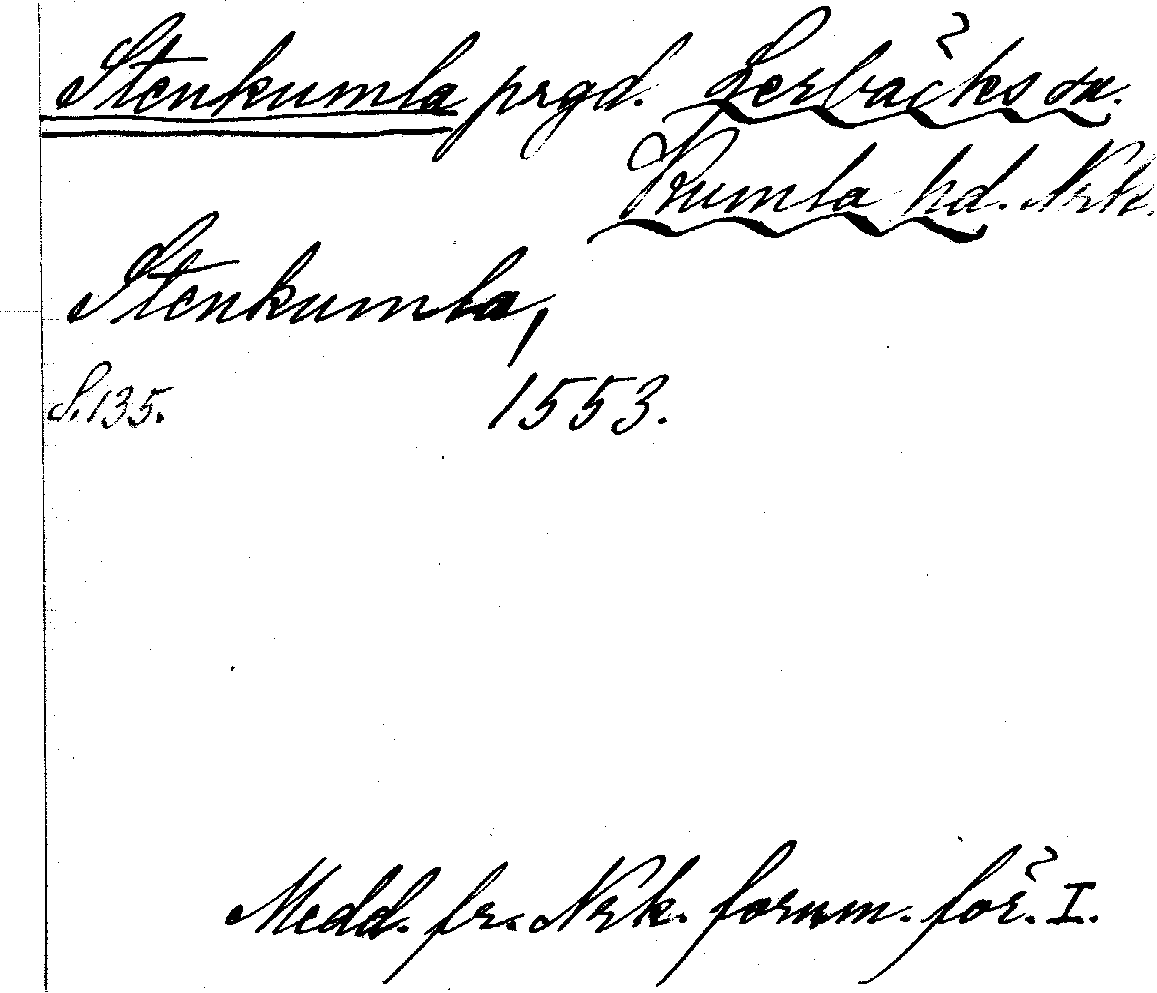 Stenkumla prgd. Lerbäcks sn.
Kumla hd. Nrk.
Stenkumla,
S. 135. 1553.
Medd. fr. Nrk. fornm. för. I.